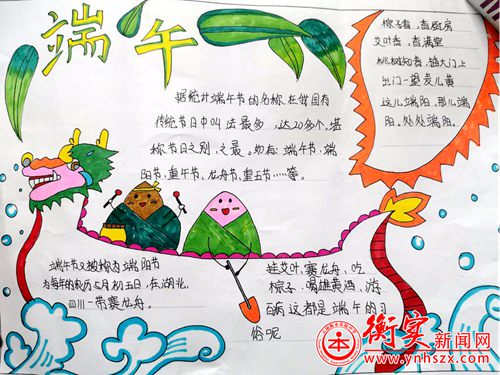 端午
据统计端午节的名称在我国有
传统节日中叫法最多，达20多个，堪
称节日之别，之最。如有：端午节，端
阳节，重午节，龙舟节，重五节……等。
粽子香，香厨房
艾叶香，香满堂
桃树枝，插大门上
出门一望麦儿黄
这儿端阳，那儿端
阳。处处端阳。
端午节又被称为端阳节
为每年的农历五月初五日，在湖北，
四川一带赛龙舟。
挂艾叶，赛龙舟，吃
粽子，喝雄黄酒，游
百病这都是端午的习
俗呢
衡实新闻网
www.ynhszx.com